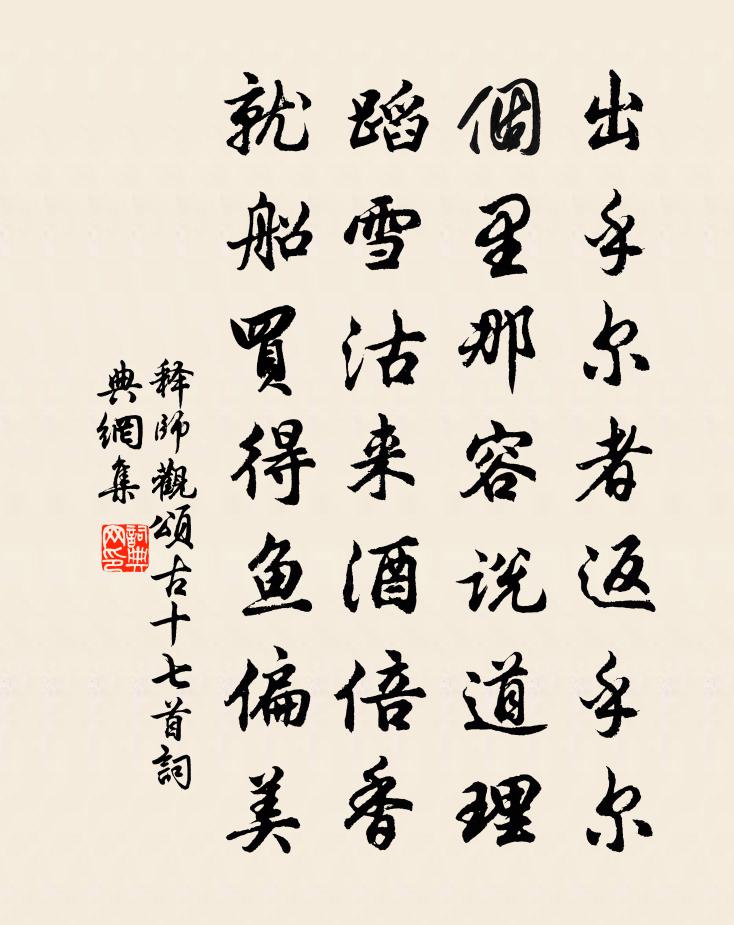 出乎尔者返乎尔
個里那容说道理
蹈雪沽来酒倍香
就船買得鱼偏美
释师觀颂古十七首詞
典網集
詞典
网印